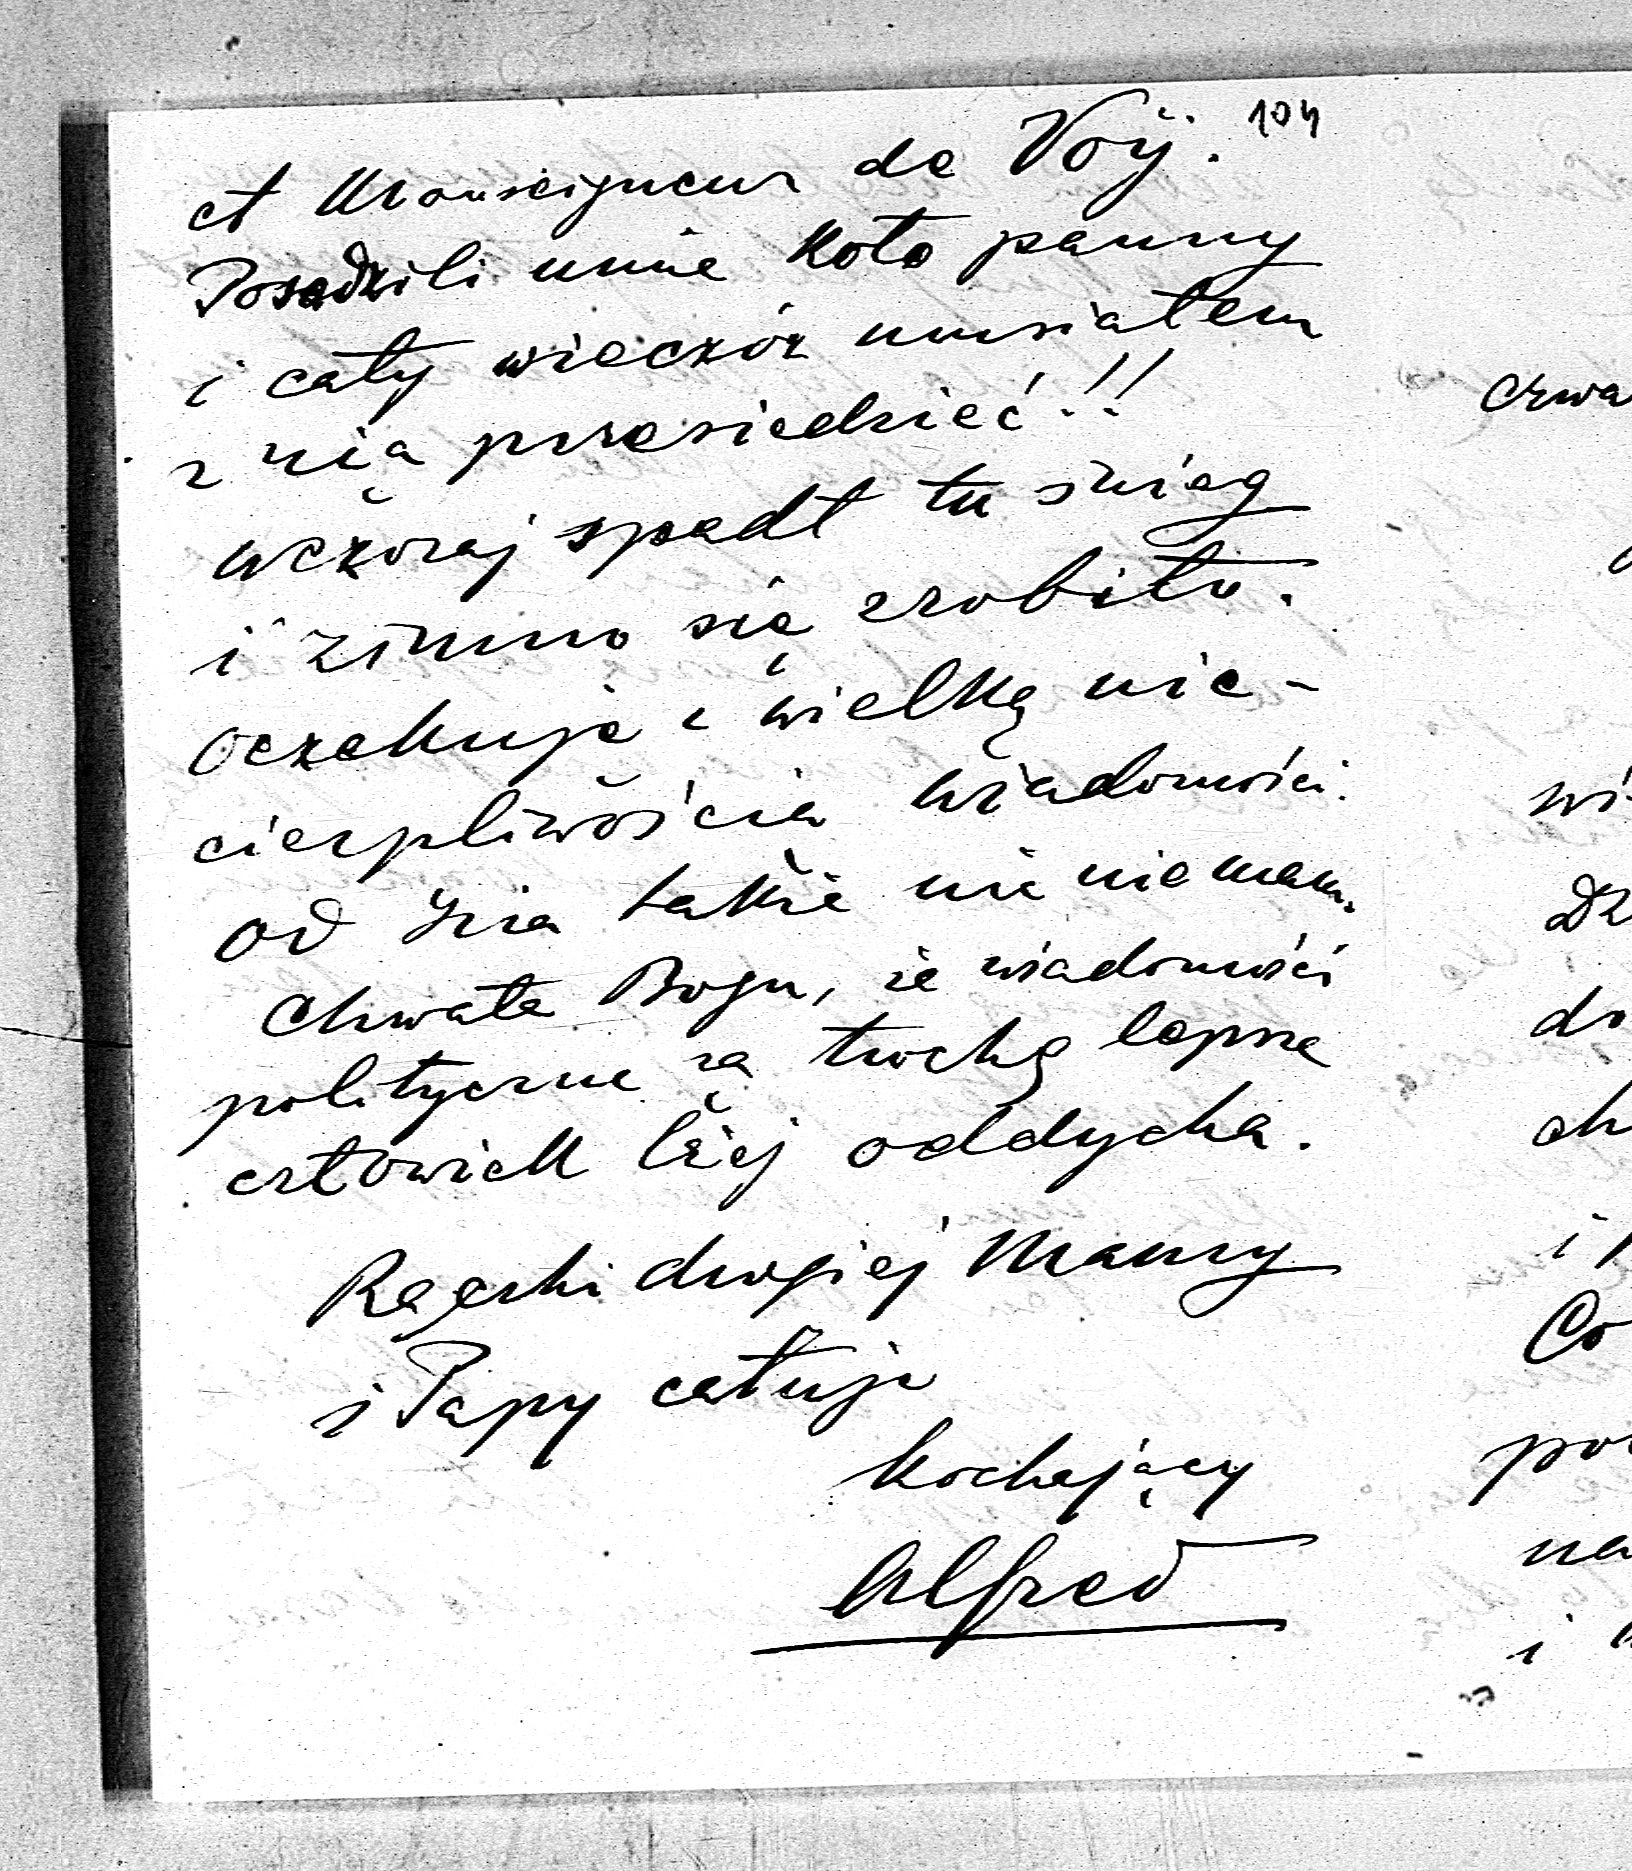 104
et Monseigneur de Voij.
Posadzili mnie koło panny
i cały wieczór musiałem
z nią przesiedzieć!!
wczoraj spadł tu śnieg
i zimno się zrobiło.
Oczekuję z wielką nie-
cierpliwością wiadomości.
od także nic nie mam.
Chwała Bogu, że wiadomości
polityczne są trochę lepsze
człowiek lżej oddycha.
Rączki drogiej Mamy
i Papy całuję
kochający
Alfred
czwa
wi
dz
do
ch
i
Co
po
na
i